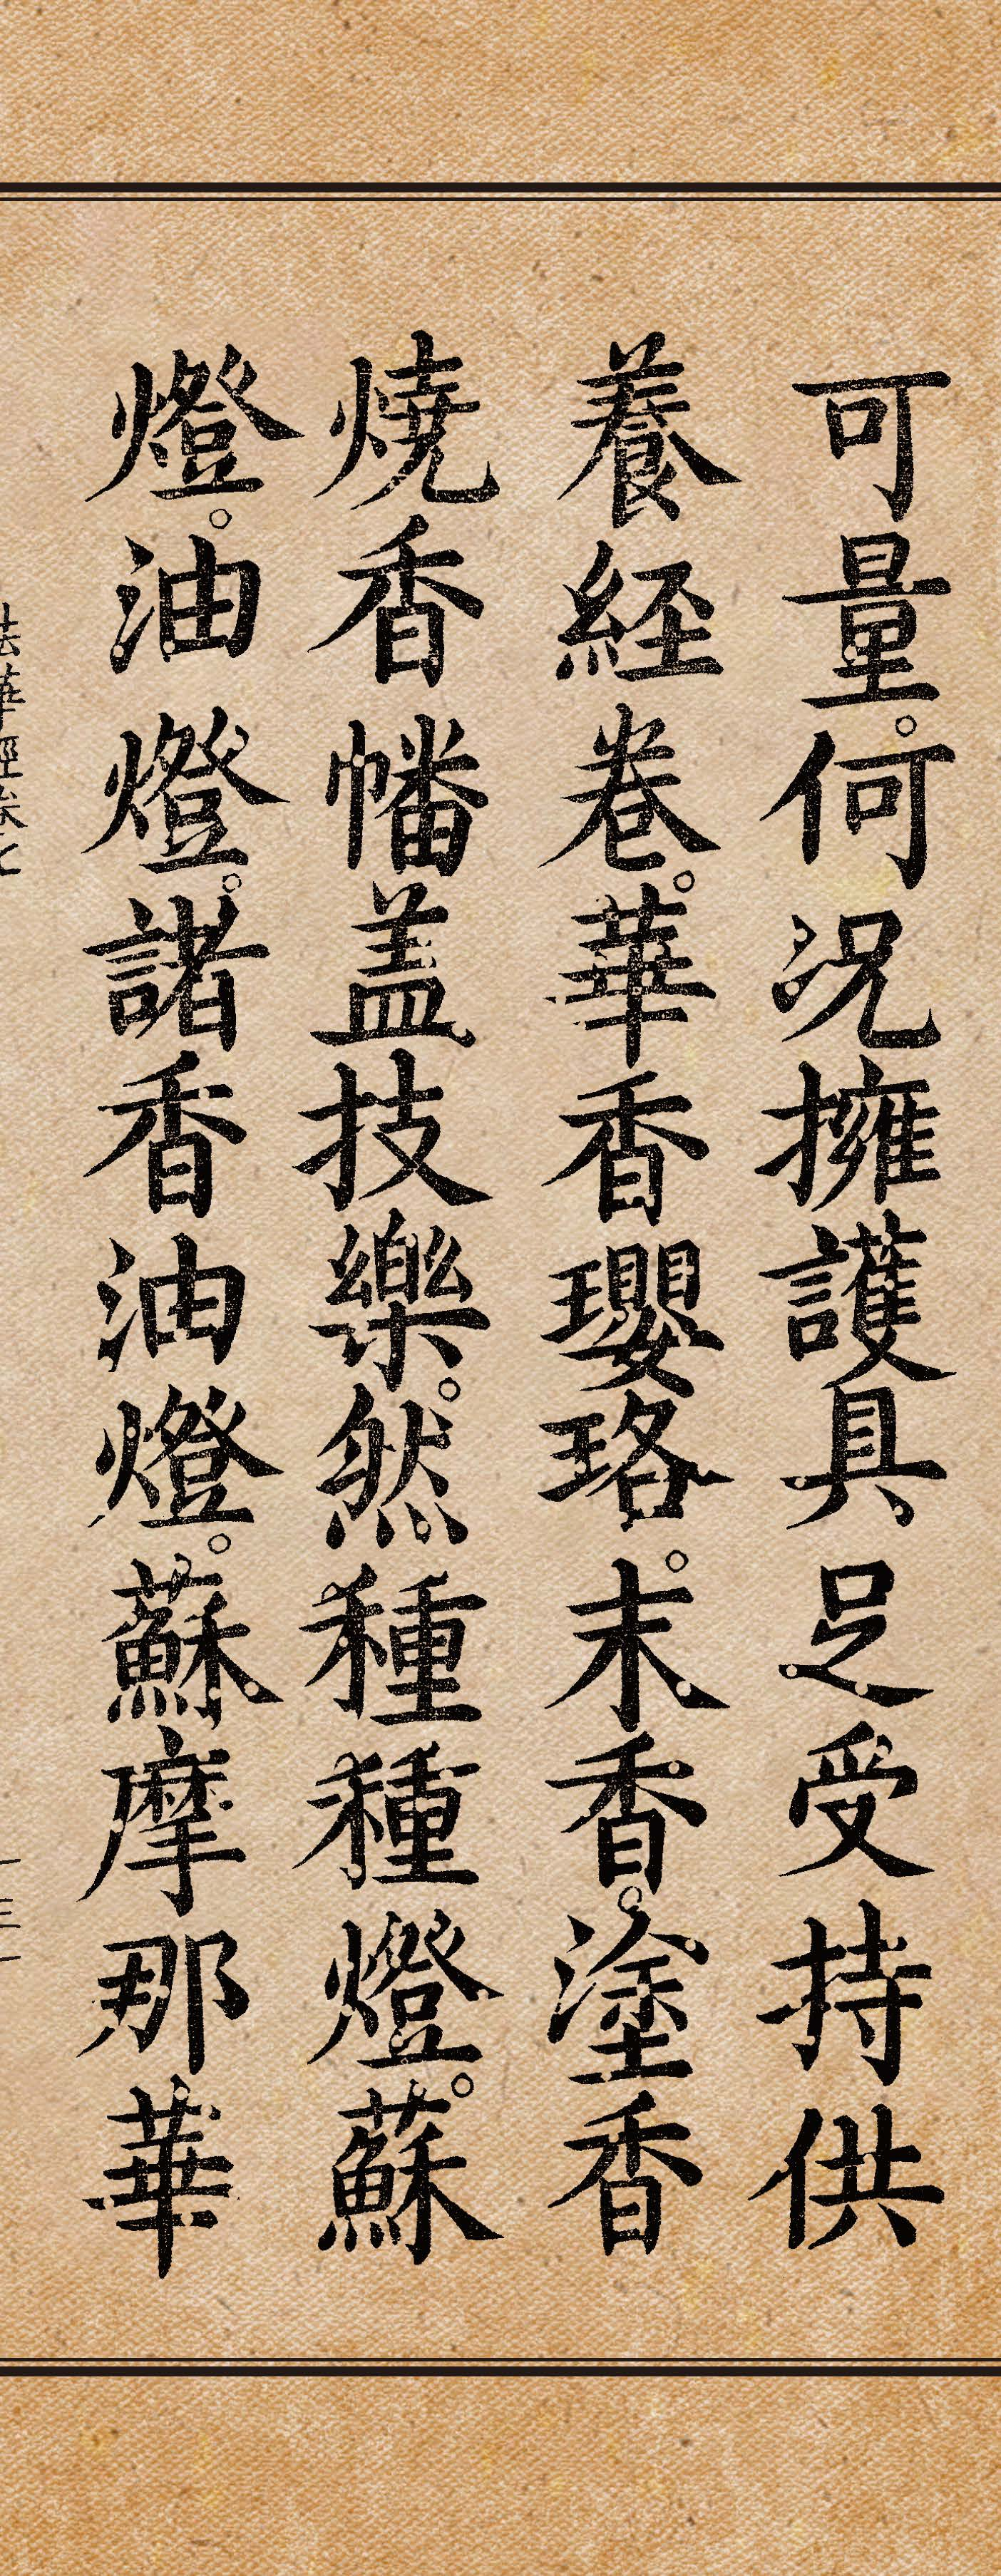 可量。何况擁護具足受持供
養経卷。華香瓔珞。末香。塗香
燒香幡盖技樂。然種種燈。蘇
燈。油燈。諸香油燈。蘇摩那華